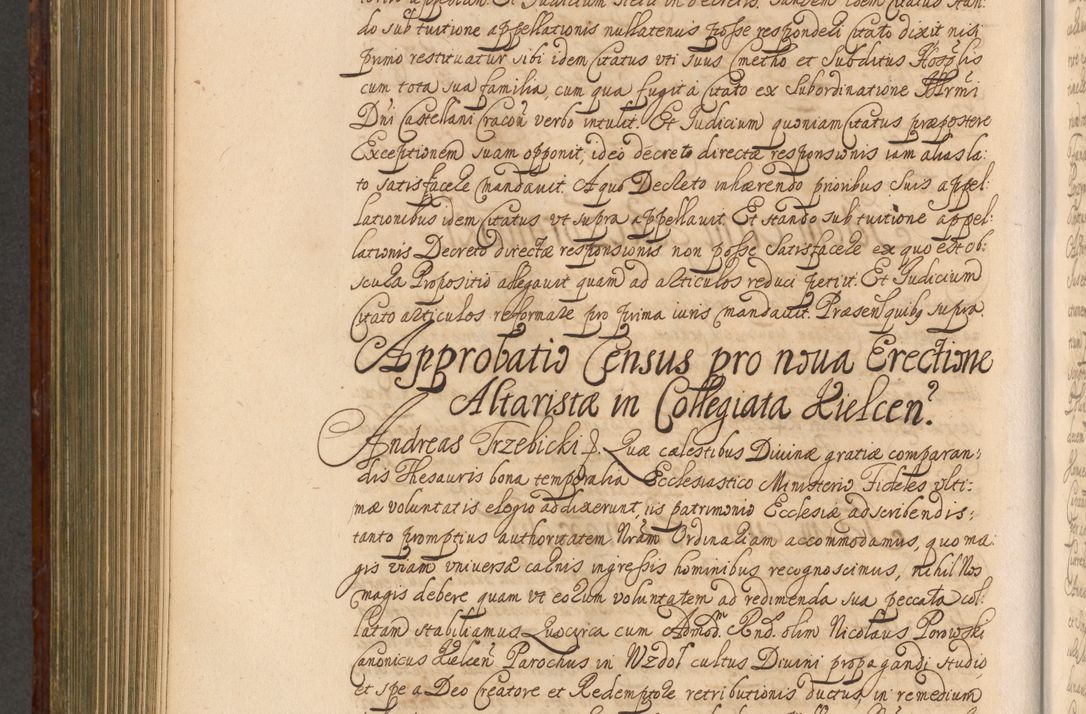 do sub tuitione appellationis nullatenus posse responderi citato dixit nisi
primo restituatur sibi idem Citatus vti suus Cmetho et Subditus
cum tota sua familia, cum qua fugit a citato ex Subordinatione Illrmi
Dni Castellani Cracoũ verbo intulit. Et Judicium quoniam Citatus præpostere
Exceptionem suam opponit, ideo decreto directæ responsionis iam alias la:
to satisfacere mandauit. A quo Decreto inhærendo prioribus suis appel:
lationibus idem Citatus vt supra appellauit. Et stando sub tuitione appel:
lationis Decreto directæ responsionis non posse satisfacere ex quo est ob:
scura Propositio allegauit quam ad articulos reduci petiit. Et Judicium
Citato articulos reformare pro prima iuris mandauit. Præsen quibq supra.
Approbatio Census pro noua Erectione
Altaristæ in Collegiata Kielcen.
Andreas Trzebicki. Quæ cælestibus Diuinæ gratiæ comparan:
dis Thesauris bona temporalia Ecclesiastico Ministerio Fideles vlti:
mæ voluntatis elogio addixerunt, iis patrimonio Ecclesiæ adscribendis:
tanto promptius authoritatem Nram Ordinariam accommodamus, quo ma:
gis viam vniversæ carnis ingressis hominibus recognoscimus, nihil Nos
magis debere quam vt eorum voluntatem ad redimenda sua peccata col:
latam stabiliamus. Quocirca cum Admod. Rnd. olim Nicolaus Porowski
Canonicus Kielceñ Parochus in Wzdoł cultus Diuini propagandi studio
et spe a Deo Creatore et Redemptore retributionis ductus, in remedium